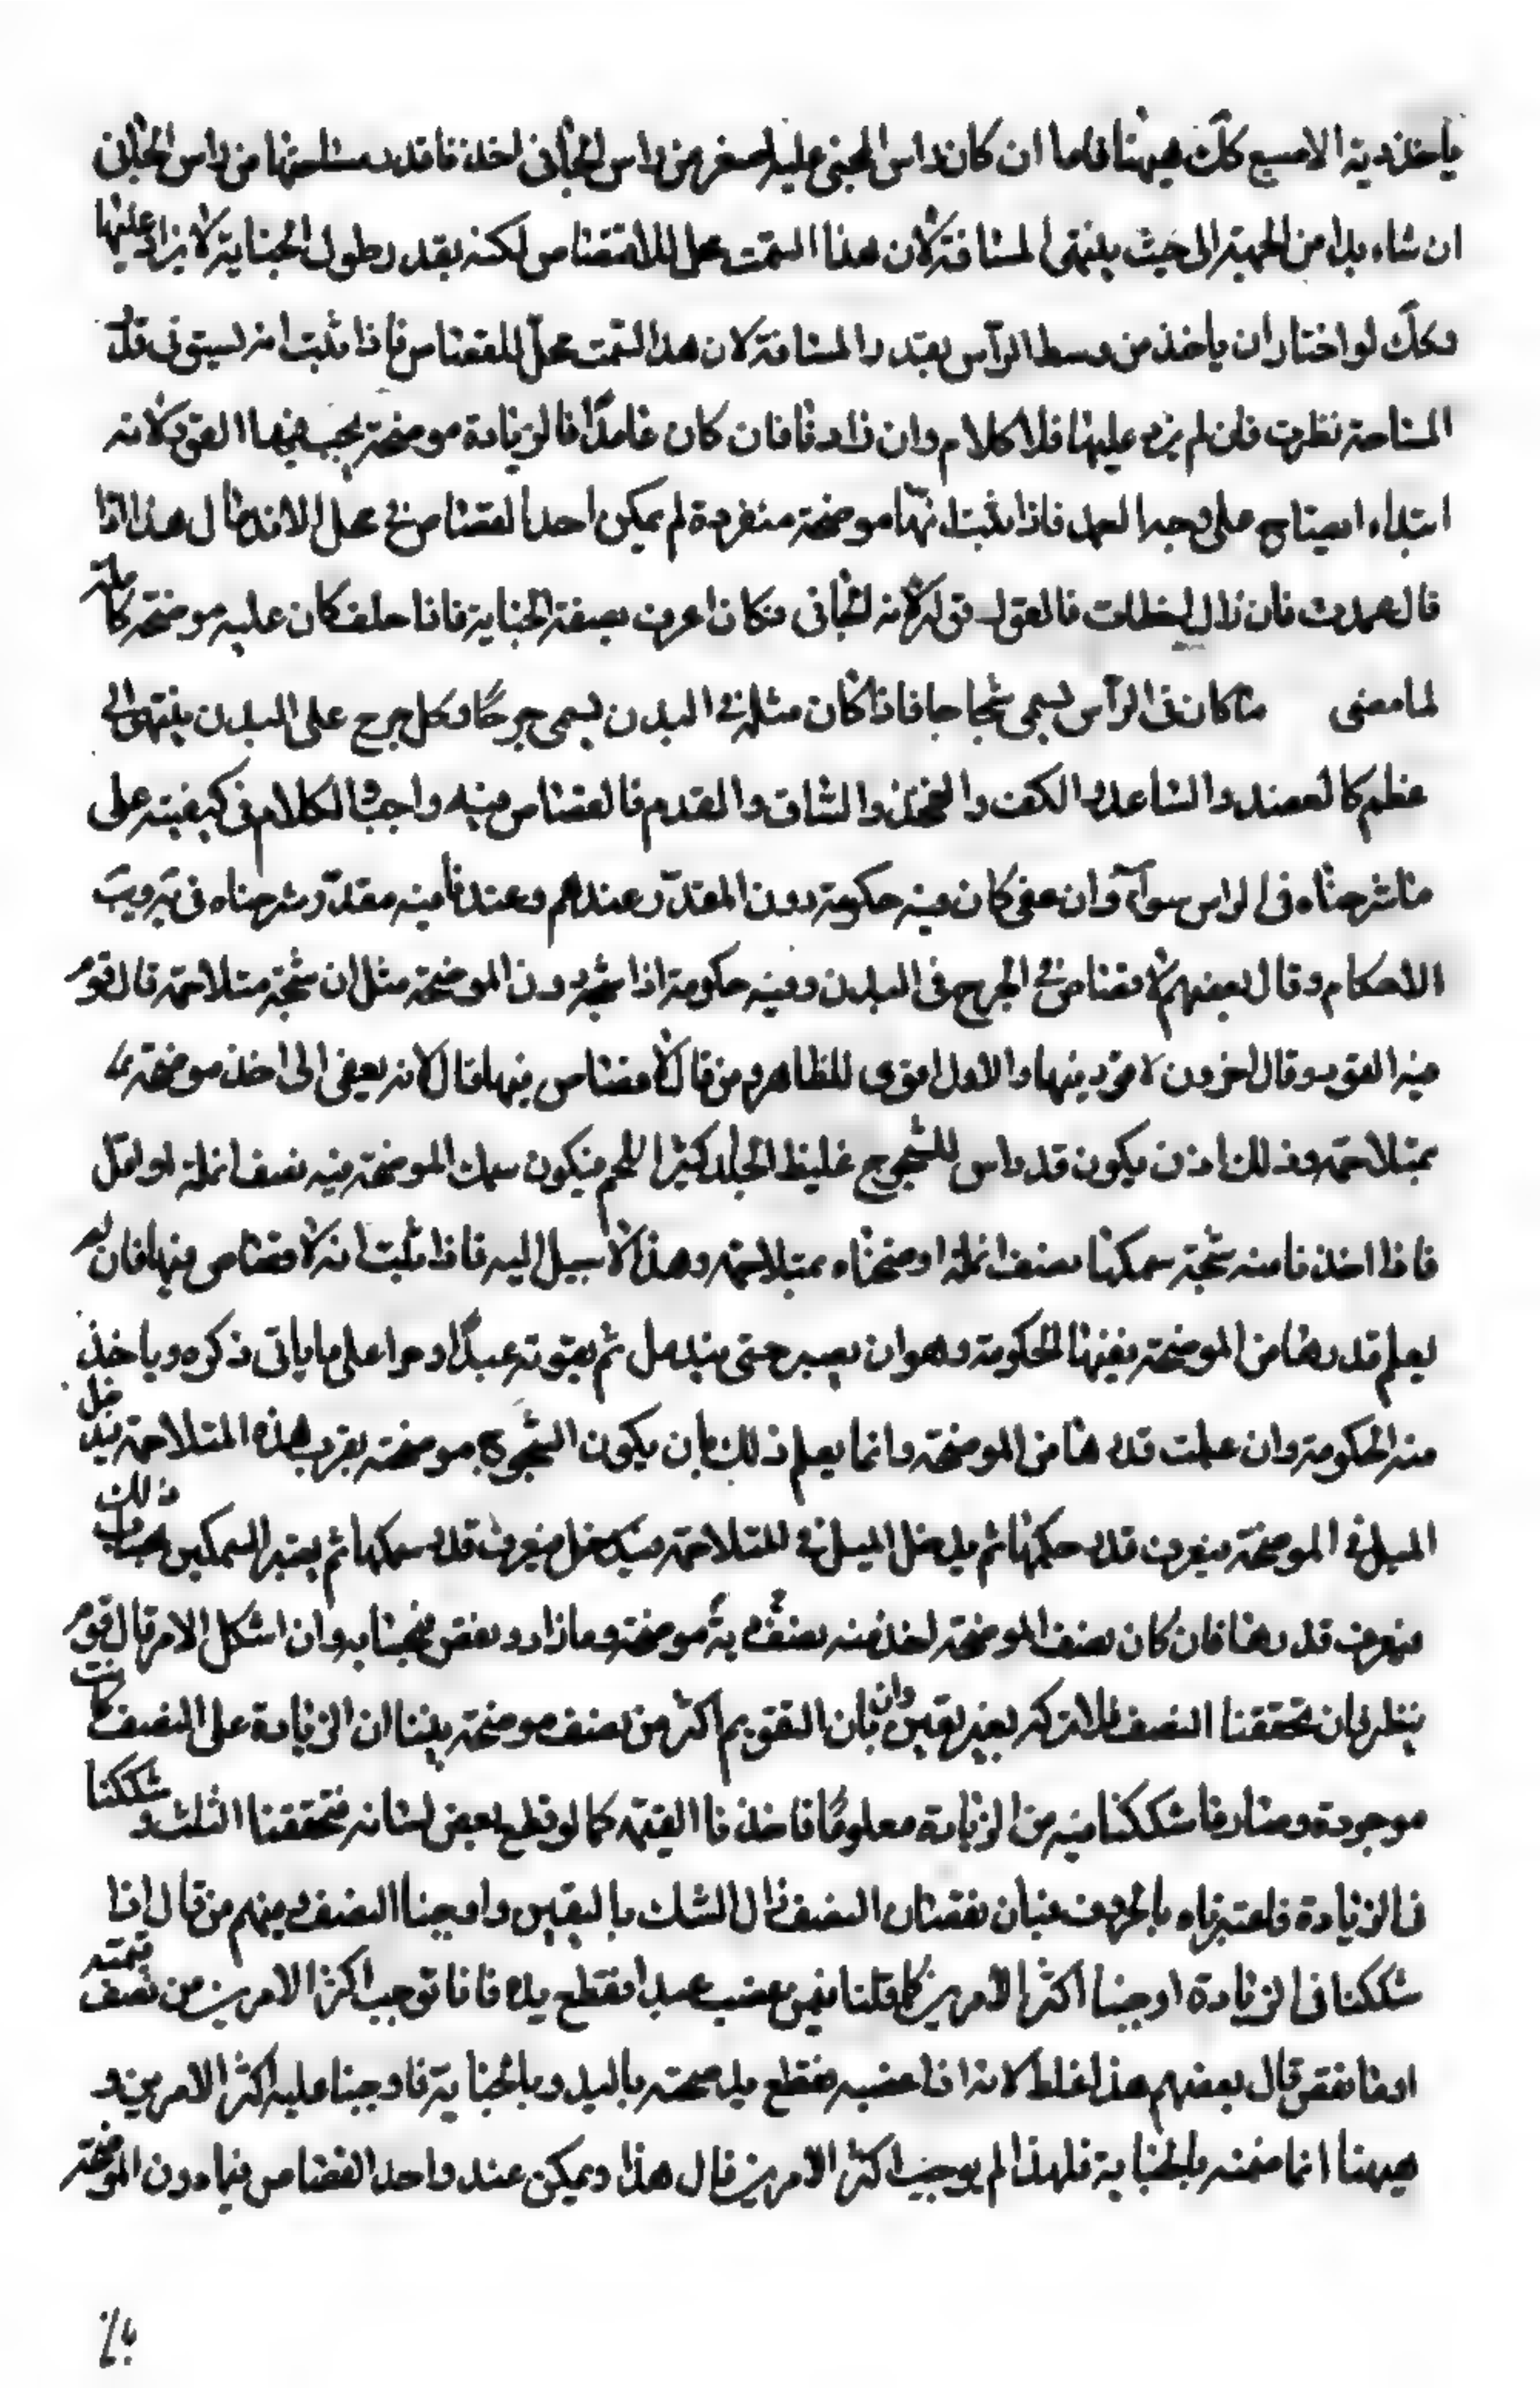 ياخذ دية الاصبع كك هيهنا فاما ان كان راس المجنى عليه اصغر من راس الجانى اخذنا قدر مساحتها من راس الجانى
ان شاء بدا من الجهة الى حيث ينتهى المسافة لان هذا السمت محل للاقتصاص لكنه بقدر طول الجناية لا يزاد عليها
وكك لو اختار ان ياخذ من وسط الرأس بقدر المسافة لان هذا السمت محل للقصاص فاذا ثبت انه يستوفى قدر
المساحة نظرت فان لم يزد عليها فلا كلام وان زاد فان كان عامدًا فالزيادة موضحة يجب فيها القود لانه
ابتداء ايضاح على وجه العمد فاذا ثبت انها موضحة منفردة لم يمكن اخذ القصاص فى محل الاندمال هذا اذا
قال عمدت فان قال اخطات فالقول قوله لانه الجانى فكان اعرف بصفة الجناية فاذا حلف كان عليه موضحة كاملة
لما مضى ما كان فى الرأس يسمى شجاجا فاذا كان مثله فى البدن يسمى جرحًا فكل جرح على البدن ينتهى الى
عظم كالعضد والساعد والكف والفخذ والساق والقدم فالقصاص فيه واجب والكلام فى كيفيته على
ما شرحناه فى الراس سوآء وان عفى كان فيه حكومة دون المقدّر عندهم وعندنا فيه مقدّر شرحناه فى تهذيب
الاحكام وقال بعضهم لا قصاص فى الجرح فى البدن وفيه حكومة اذا شجه دون الموضحة مثل ان شجه متلاحمة قال قوم
فيه القود وقال اخرون لا قود فيها والاول اقوى للظاهر ومن قال لا قصاص فيها قال لانه يفضى الى اخذ موضحة
بمتلاحمة وذلك انه يكون قد راس المشجوج غليظ الجلد كثير اللحم فيكون سمك الموضحة فيه نصف انملة او اقل
فاذا اخذنا منه شجة سمكها نصف انملة اوضحناه بمتلاحمة وهذا لا سبيل اليه فاذا ثبت انه لا قصاص فيها فان لم
يعلم قدرها من الموضحة ففيها الحكومة وهو ان يصبر حتى يندمل ثم يقومه عبدًا او حرا على ما ياتى ذكره وياخذ
منه الحكومة وان علمت قدرها من الموضحة وانما يعلم ذلك بان يكون الشجوج موضحة بقرب هذه المتلاحمة يدخل
الميل فى الموضحة فيعرف قدر سمكها ثم يدخل الميل فى المتلاحمة فيدخل فيعرف قدر سمكها ثم يعتبر السمكين بحساب ذلك
فيعرف قدرها فان كان نصف الموضحة اخذ منه نصف دية موضحة وما زاد ونقص فبحسابه وان اشكل الامر قال قوم
ينظر فان تحققنا النصف فلا تترك بغير يقين وان بان التقويم اكثر من نصف موضحة بيننا ان الزيادة على النصف كانت
موجودة وصار ما شككنا فيه من الزيادة معلومًا فاخذنا القيمة كما لو قطع بعض لسانه فتحققنا الثلث وشككنا
فى الزيادة فاعتبرناه بالحروف فبان نقصان النصف زال الشك باليقين واوجبنا النصف ومنهم من قال اذا
شككنا فى الزيادة اوجبنا اكثر الامرين كما قلنا فيمن غصب عبدا فقطع يده فانا نوجب اكثر الامرين من نصف قيمته
او ما نقص قال بعضهم هذا غلط لانه اذا غصبه فقطع يده ضمنه باليد وبالجناية فاوجبنا عليه اكثر الامرين و
هيهنا انما ضمنه بالجناية فلهذا لم يوجب اكثر الامرين قال هذا ويمكن عند واحد القصاص فيما دون الموضحة